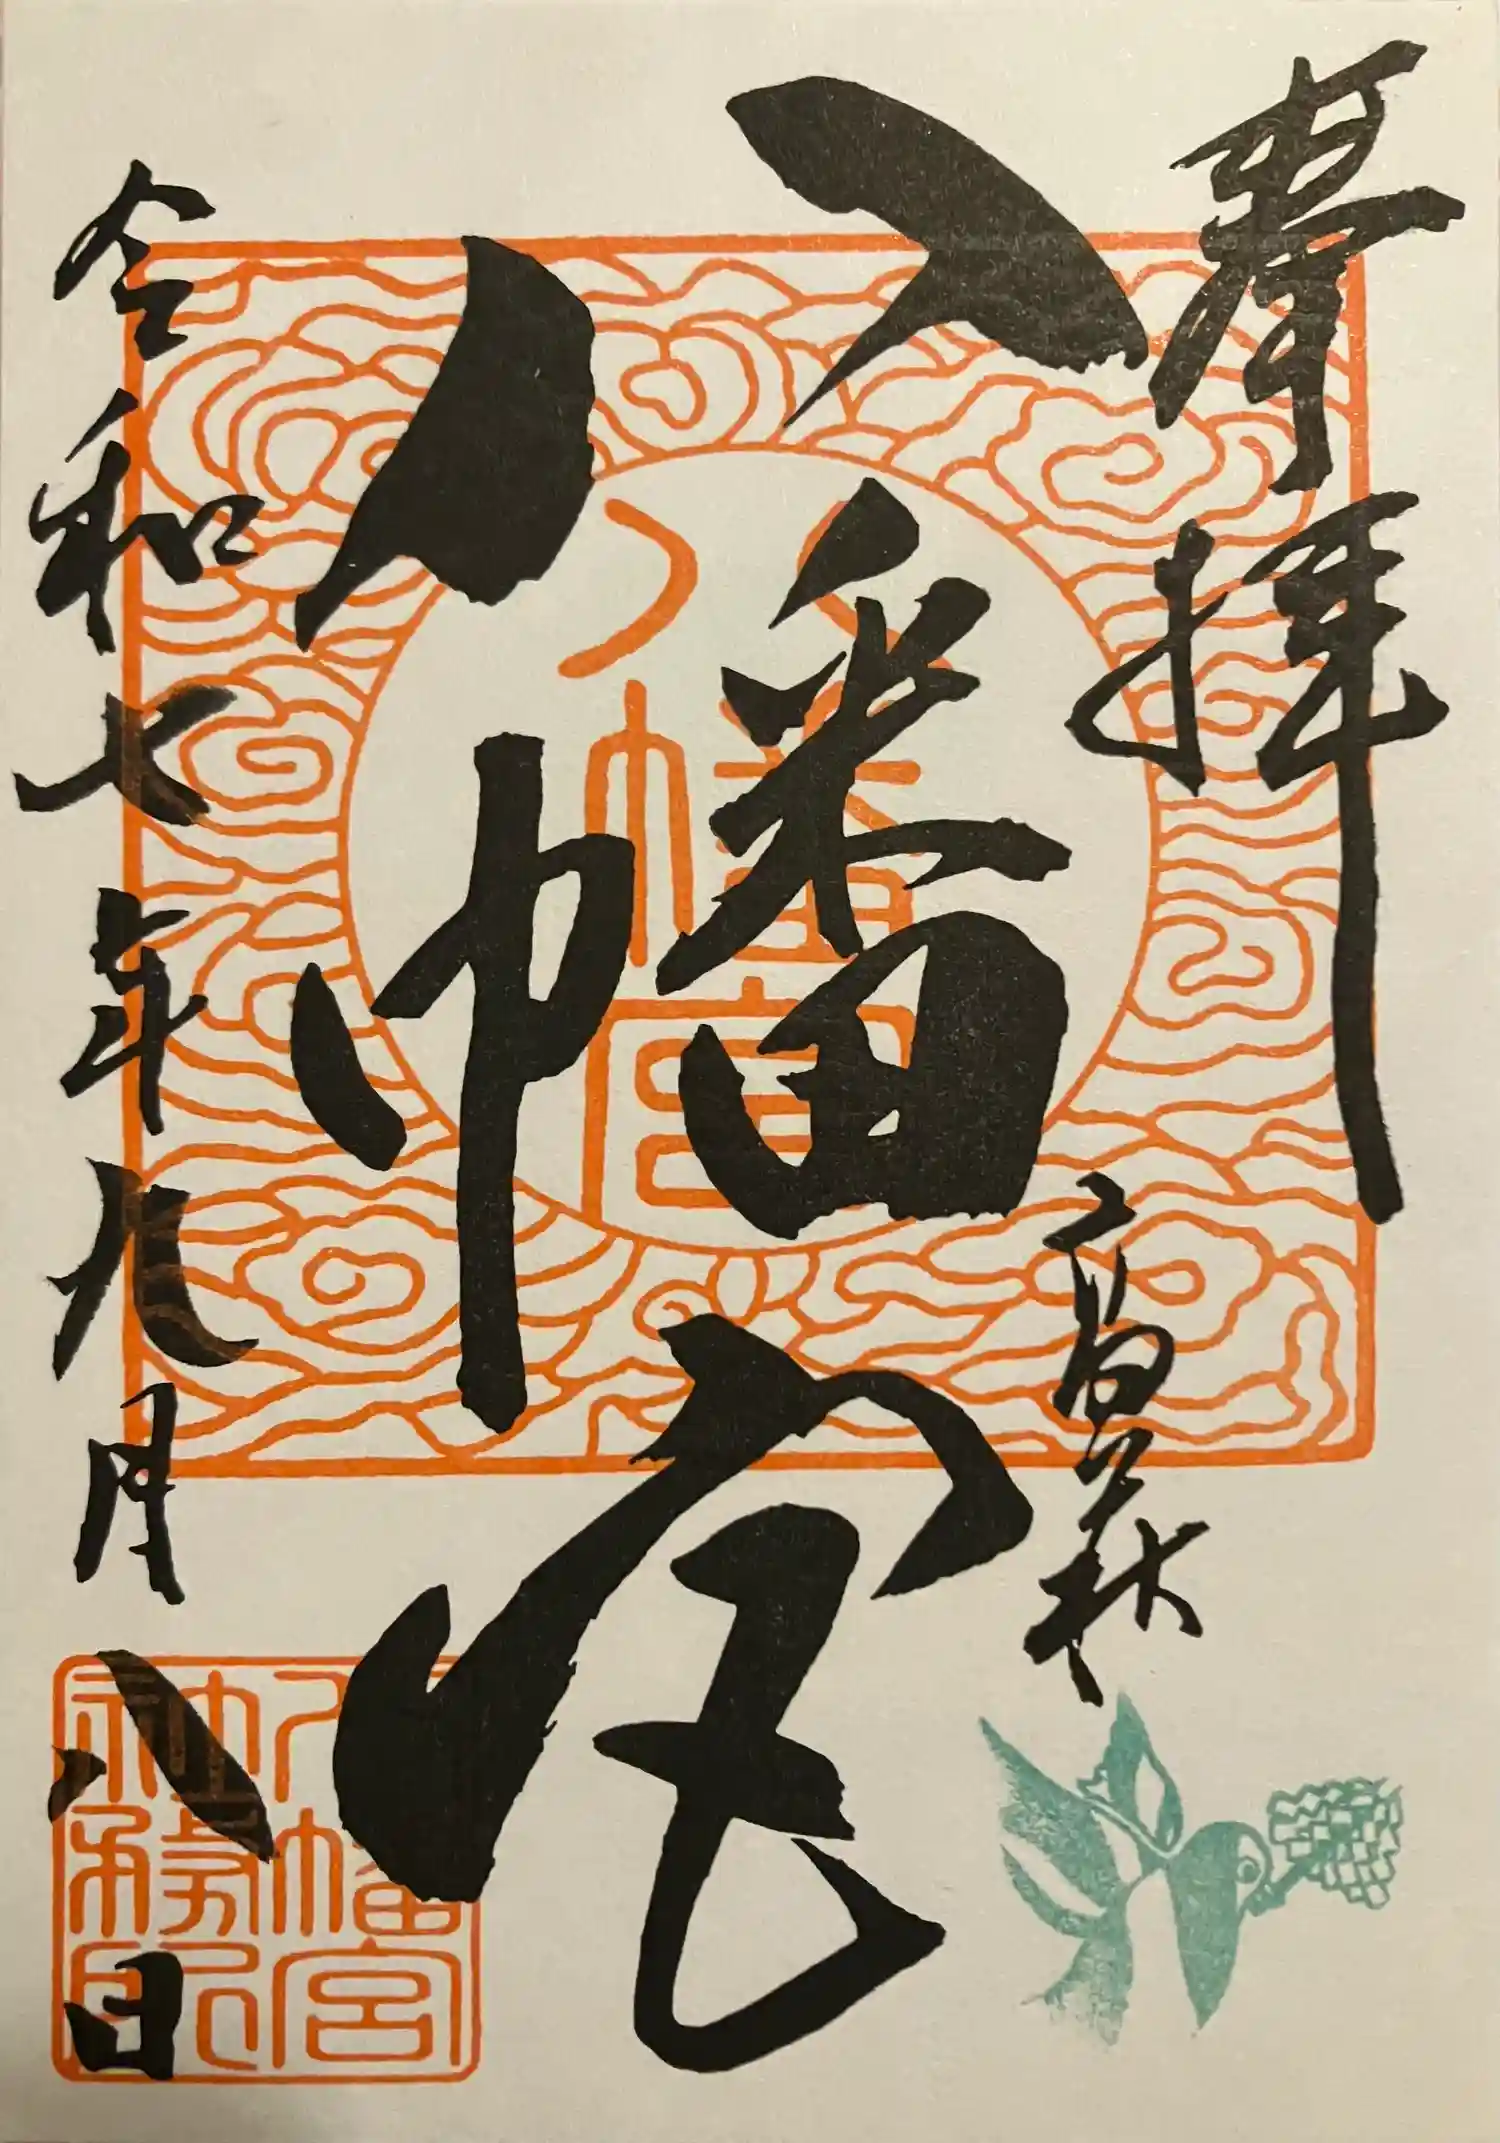 奉拝
高萩
八幡宮
八幡宮
令和七年九月八日
八幡宮
社務所